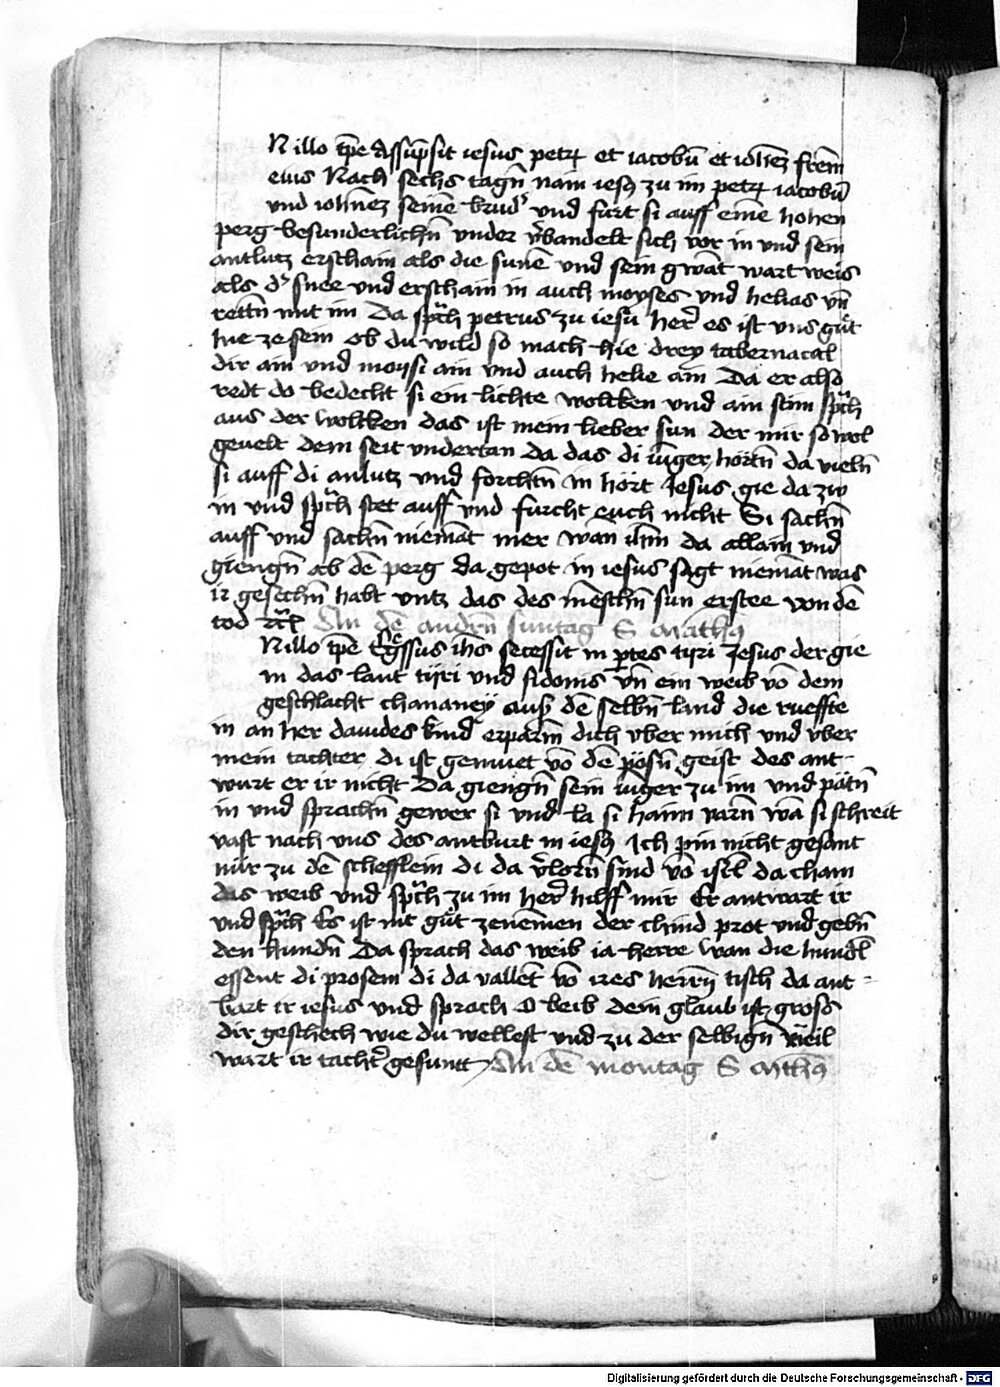 N illo tpe Assupsit iesus petrꝫ et iacobū et ioħez frēm
eius Nach sechs tagn̄ nam iesꝯ zu im petrꝫ iacobū
und ioħnez seinē brud' und furt si auff einē hohen
perg besunderlichn̄ under v̄bandelt sich vor in und sein
antlutz erschain als die sunē und sein gwāt wart weis
als d' snee und erschain in auch moyses und helias vn̄
rettn̄ mit im Da sp̄ch petrus zu iesu her̄ es ist uns gůt
hie ze sein ob du wild so mach hie drey tabernacal
dir ain und moysi ain und auch helie ain Da er also
redt do bedecht si ein lichte wolcken und ain stim sp̄ch
aus der wolcken das ist mein lieber sun der mir so wol
gevelt dem seit undertan Da das di iūger hörtn̄ da vieln̄
si auff di anlutz und forchtn̄ in hört Jesus gie da zw
in und sp̄ch stet auff und furcht euch nicht Si sachn̄
auff und sachn̄ niemāt mer wan iħm da allain und
giengn̄ ab dē perg da gepot in iesus sagt niemāt was
ir gesechn̄ habt untz das des mēschn̄ sun erstee von dē
tod An dē andn̄ suntag S Mathꝯ
N illo tpe Egssus iħs secessit in ptes tyri Jesus der gie
in das lant tyri und sidonis vn̄ ein weib vō dem
geschlacht chananey auß dē selbn̄ land die rueffte
in an her dauides kind erparm dich uber mich und uber
mein tachter di ist gemuet vō dē pösn̄ geist des ant-
wurt er ir nicht Da giengn̄ sein iūger zu im und pātn̄
in und sprachn̄ gewer si und la si haim varn̄ wā si schreit
vast nach uns des antburt in iesꝯ Ich pin nicht gesant
nur zu dē schefflein di da v̄lorn̄ sind vō isrl̄ da cham
das weib und sp̄ch zu im her̄ hilff mir Er antwart ir
und sp̄ch Es ist nit gůt ze nemen der chind prot und gebn̄
den hundn̄ Da sprach das weib ia herre wan die hundl̄
essent di prosem di da vallēt vō ires herrn̄ tisch da ant-
bart ir iesus und sprach O beib dein glaub ist gross
dir geschech wie du wellest und zu der selbign̄ weil
wart ir tacht' gesuntt An dē montag S Mthꝯ
Digitalisierung gefördert durch die Deutsche Forschungsgemeinschaft - DFG